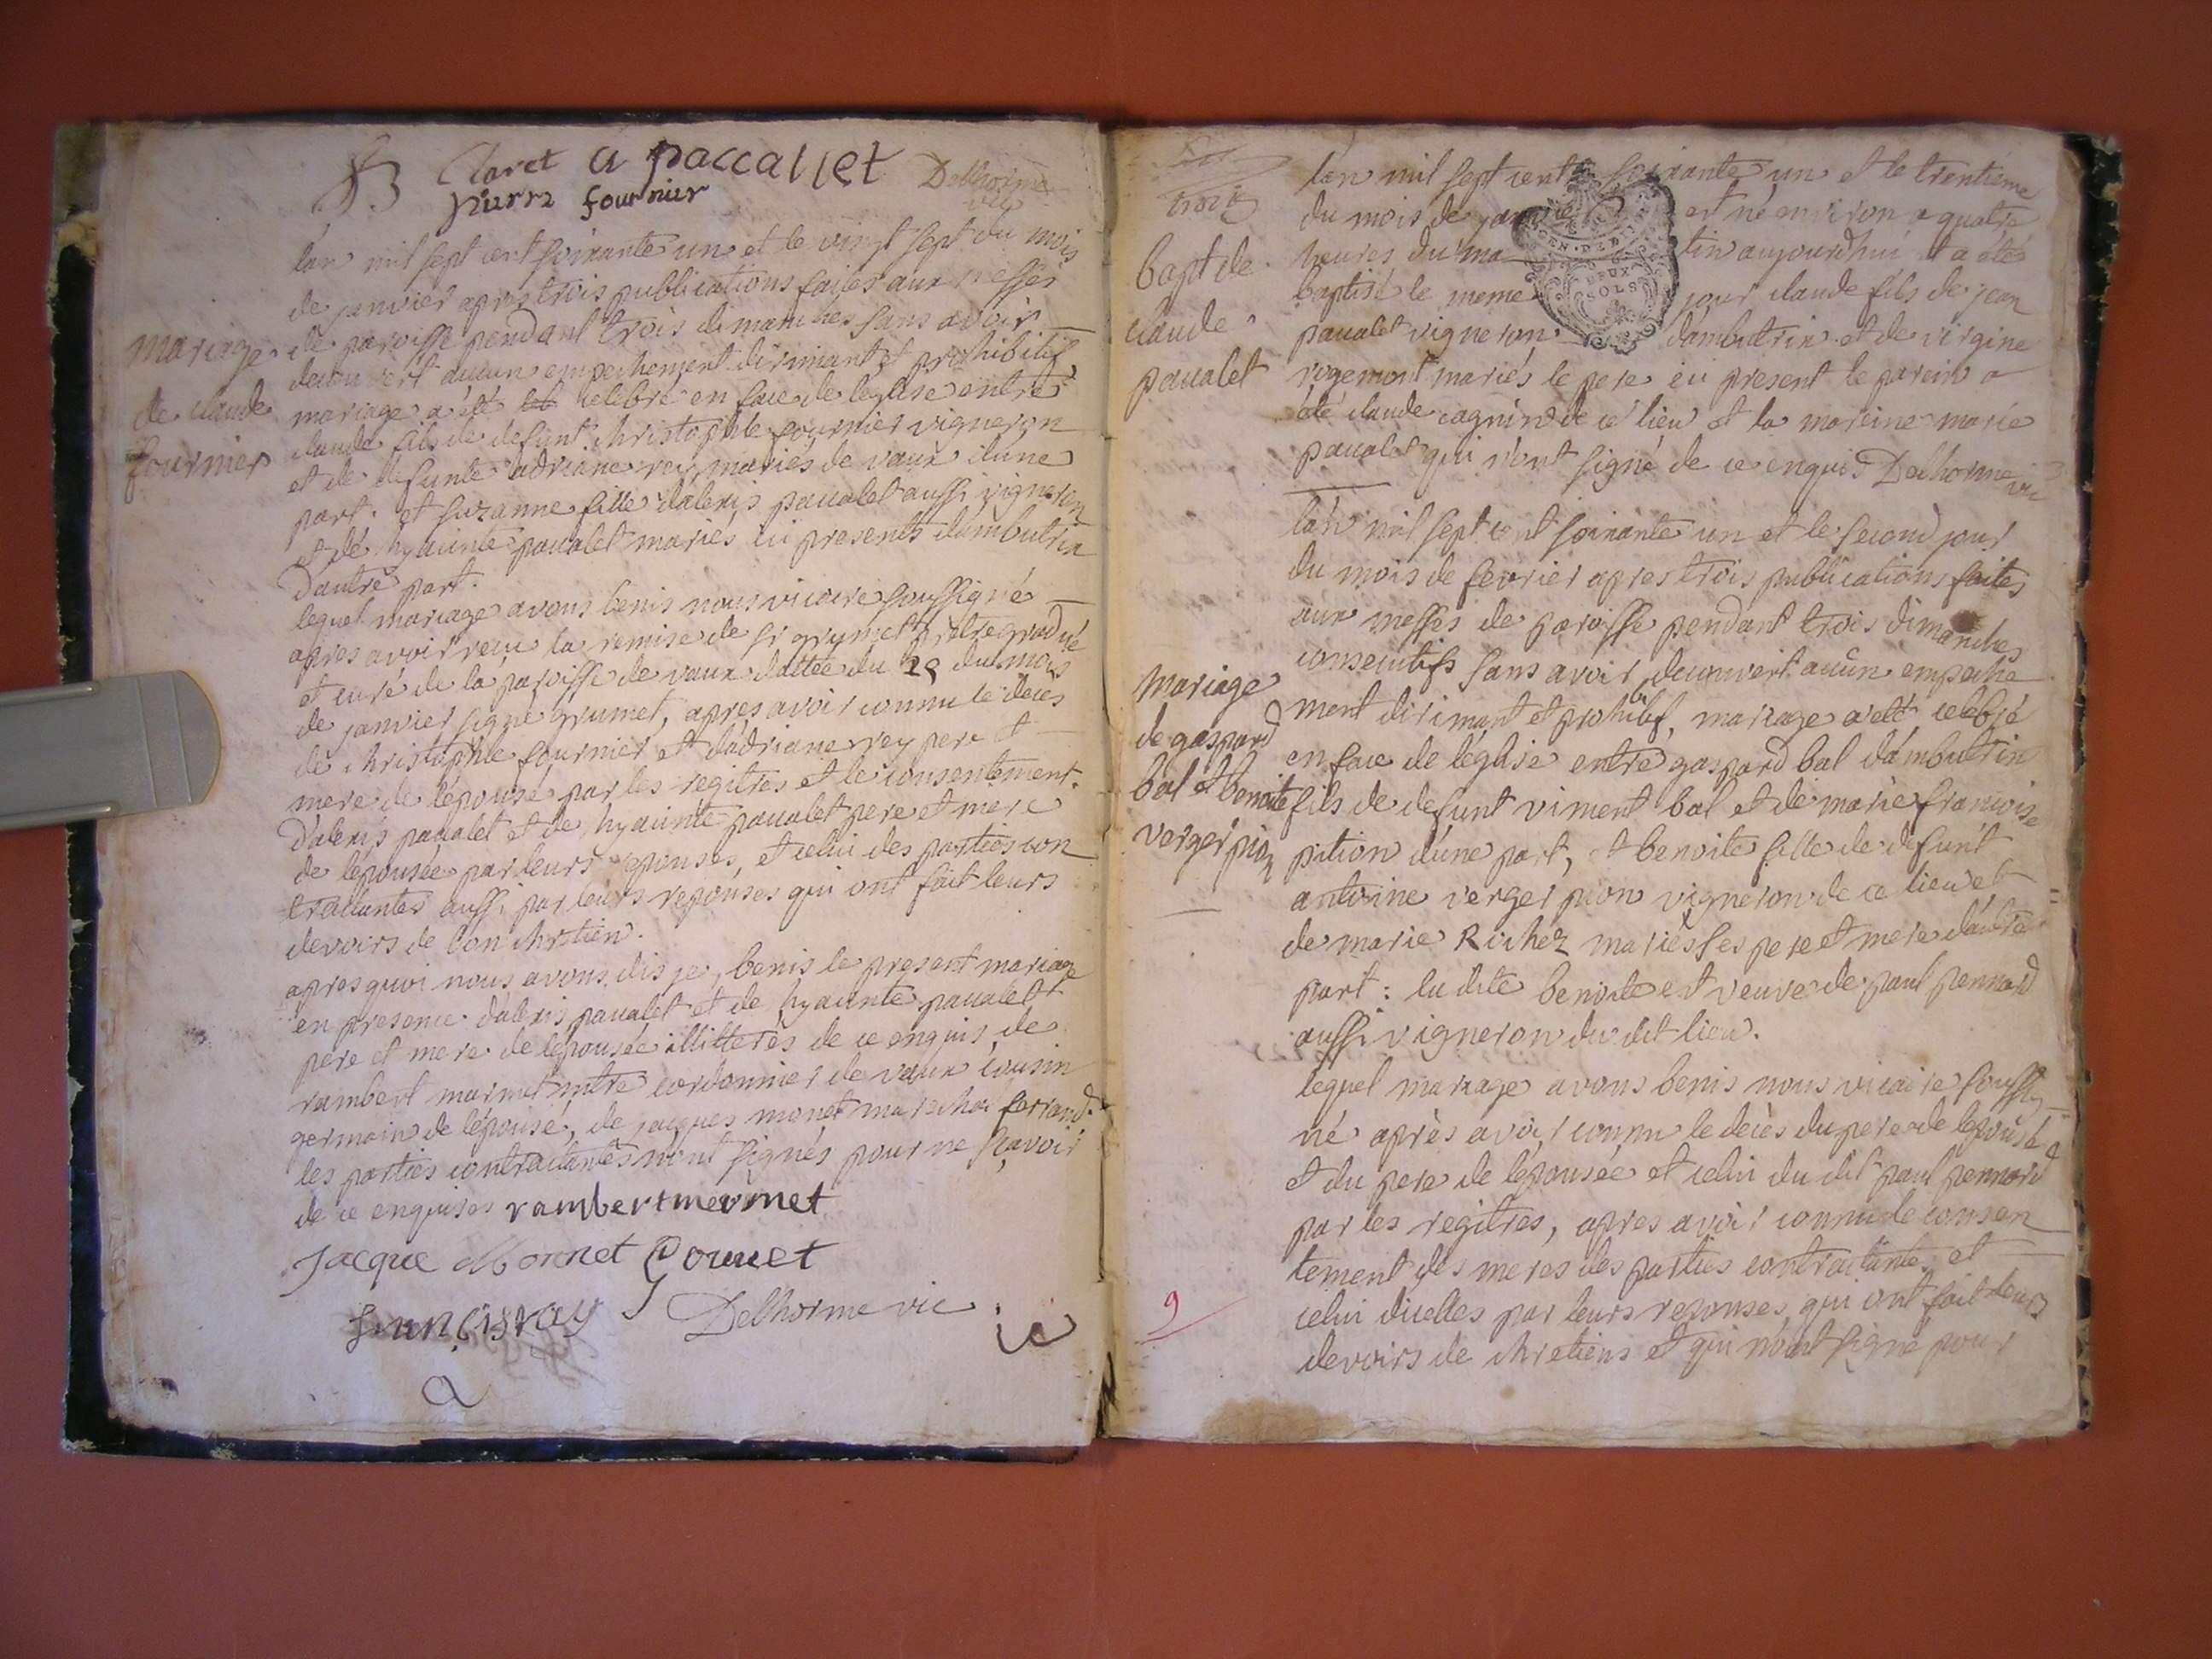 Claret a paccallet Delhorme
pierre fournier vic
lan mil sept cent soixante un et le vingt sept du mois
de janvier apres trois publications faites aux messes
de paroisse pendant trois dimanches sans avoir
decouvert aucun empechement dirimant et prohibitif
mariage a été celebré en face de leglise entre
claude fils de defunt christophle fournier vigneron
et de defunte adriane rey mariés de vaux dune
part. et suzanne fille dalexis pacalet aussi vigneron
et de hyacinte pacalet mariés ici presents dambutrin
dautre part.
lequel mariage avons benis nous vicaire soussigné
apres avoir recu la remise de sr grumet prêtre gradué
et curé de la paroisse de vaux dattée du 25 du mois
de janvier signé grumet, apres avoir connu le décès
de christophle fournier et dadriane rey pere et
mere de lépousé par les regitres et le consentement
dalexis pacalet et de hyacinte pacalet pere et mere
de lépousée par leurs reponses, et celui des parties con
tractantes aussi par leurs reponses qui ont fait leurs
devoirs de bon chrstien.
apres quoi nous avons, dis je, benis le present mariage
en presence dalexis pacalet et de hyacinte pacalet
pere et mere de lépousée illitterés de ce enquis, de
rambert marmet mtre cordonnier de vaux cousin
germain de lépousé, de jacques monet marechal ferrand.
les parties contractantes nont signés pour ne sçavoir
de ce enquises rambert mermet
Jacque Monnet
françis ray Delhorme vic
mariage
de claude
fournier
trois
bapt de
claude
pacalet
lan mil sept cent soixante un et le trentieme
du mois de janvier est né environ a quatre
heures du matin aujourdhui et a été
baptisé le meme jour claude fils de jean
pacalet vigneron dambutrin et de virgine
rogemont mariés le pere ici present le parein a
été claude cagnin de ce lieu et la mareine marie
pacalet qui n'ont signé de ce enquis Delhorme vic
GEN. DEUX SOLS
lan mil sept cent soixante un et le second jour
du mois de fevrier apres trois publications faites
aux messes de paroisse pendant trois dimanches
consecutifs sans avoir decouvert aucun empeche
ment dirimant et prohibitif, mariage a été celebré
en face de léglise entre gaspard bal dámbutrin
fils de defunt viment bal et de marie francoise
pition dúne part, et benoite fille de defunt
antoine verger pion vigneron de ce lieu et
de marie Richez mariés ses pere et mere dautre
part: la dite benoite est veuve de paul pennard
aussi vigneron du dit lieu.
lequel mariage avons benis nous vicaire soussig
né après avoir connu le décès du pere de lépousé
et du pere de lépousée et celui du dit paul pennard
par les regitres, apres avoir connu le consen
tement des meres des parties contractantes et
celui dicelles par leurs reponses qui ont fait leurs
devoirs de chretiens et qui n'ont signé pour
mariage
de gaspard
bal et benoite
verger pion
9